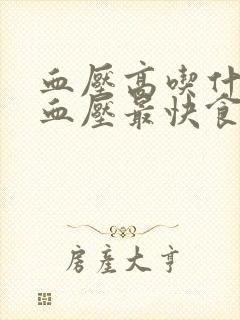 血壓高喫什
血壓最快食
房產大亨